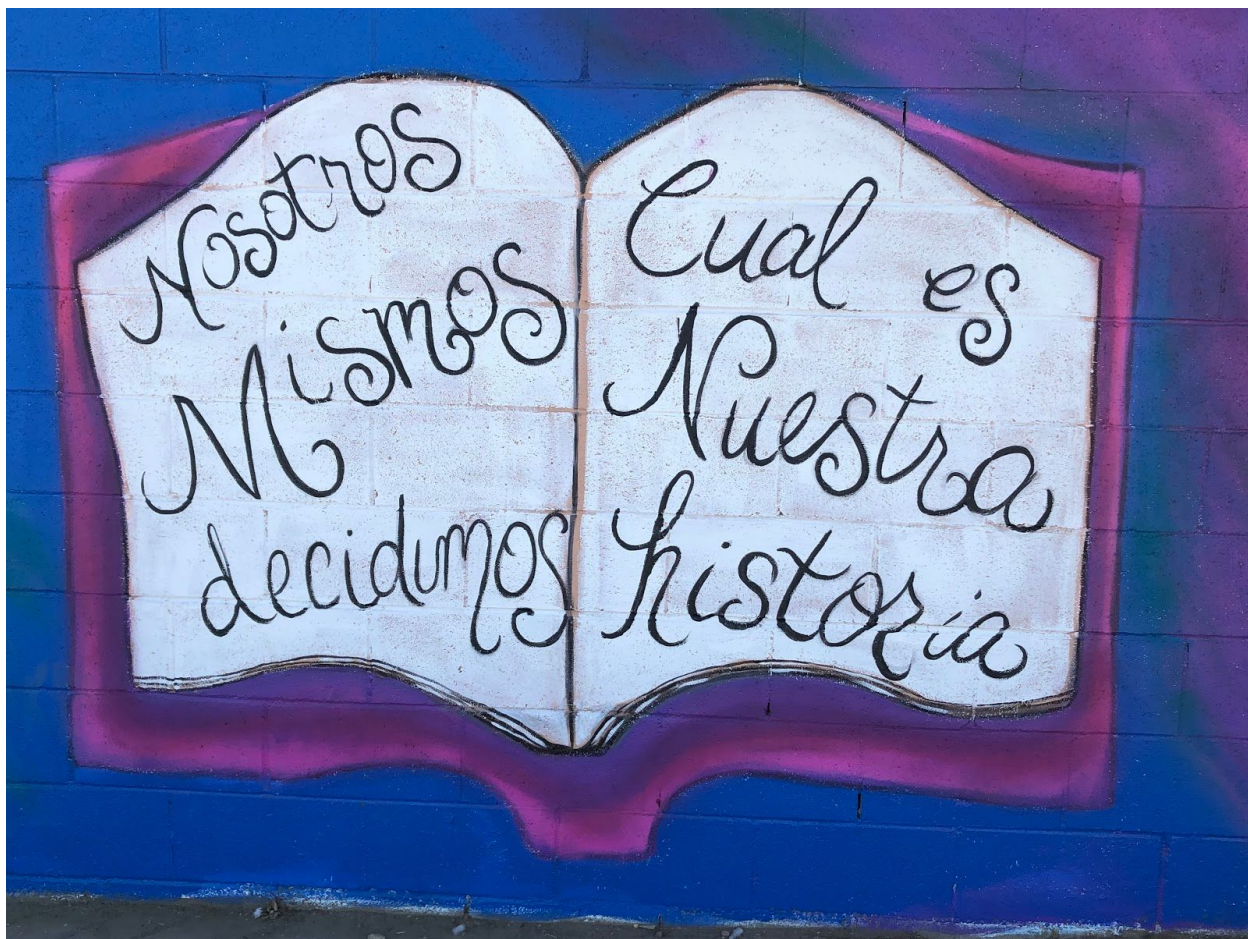 Nosotros
Mismos
decidimos
Cual es
Nuestra
historia